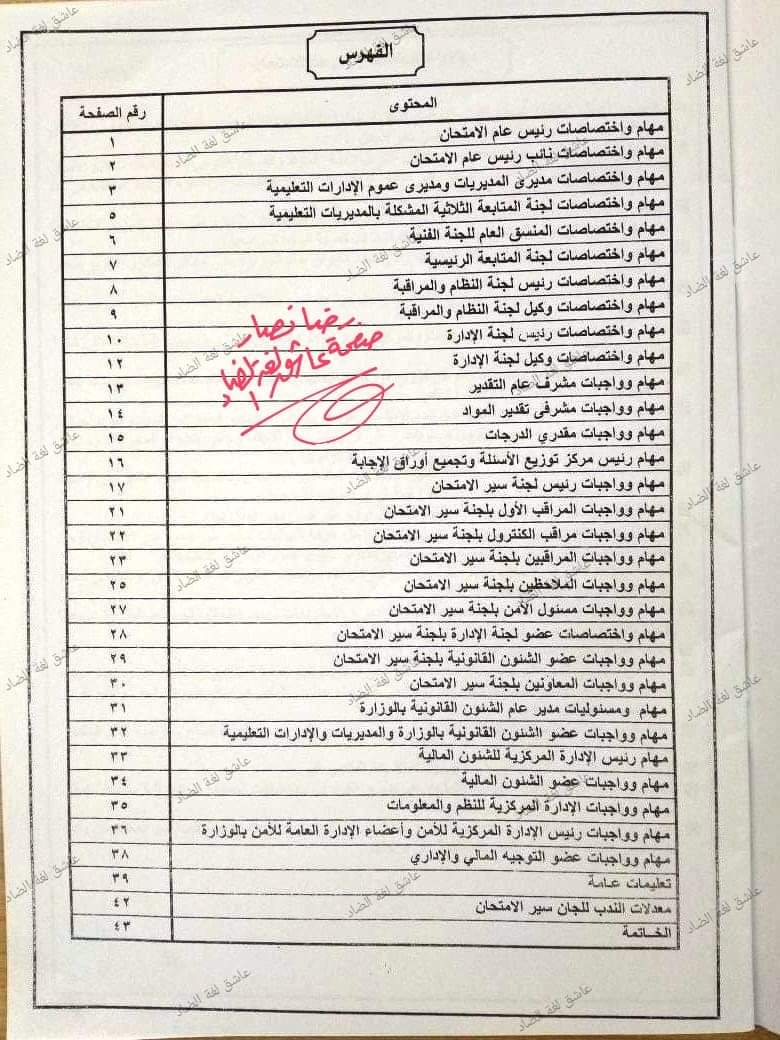 الفهرس
المحتوى رقم الصفحة
مهام واختصاصات رئيس عام الامتحان ١
مهام واختصاصات نائب رئيس عام الامتحان ٢
مهام واختصاصات مديرى المديريات ومديرى عموم الإدارات التعليمية ٣
مهام واختصاصات لجنة المتابعة الثلاثية المشكلة بالمديريات التعليمية ٥
مهام واختصاصات المنسق العام للجنة الفنية ٦
مهام واختصاصات لجنة المتابعة الرئيسية ٧
مهام واختصاصات رئيس لجنة النظام والمراقبة ٨
مهام واختصاصات وكيل لجنة النظام والمراقبة ٩
مهام واختصاصات رئيس لجنة الإدارة ١٠
مهام واختصاصات وكيل لجنة الإدارة ١٢
مهام وواجبات مشرف عام التقدير ١٣
مهام وواجبات مشرفى تقدير المواد ١٤
مهام وواجبات مقدري الدرجات ١٥
مهام رئيس مركز توزيع الأسئلة وتجميع أوراق الإجابة ١٦
مهام وواجبات رئيس لجنة سير الامتحان ١٧
مهام وواجبات المراقب الأول بلجنة سير الامتحان ٢١
مهام وواجبات مراقب الكنترول بلجنة سير الامتحان ٢٢
مهام وواجبات المراقبين بلجنة سير الامتحان ٢٣
مهام وواجبات الملاحظين بلجنة سير الامتحان ٢٥
مهام وواجبات مسئول الأمن بلجنة سير الامتحان ٢٧
مهام واختصاصات عضو لجنة الإدارة بلجنة سير الامتحان ٢٨
مهام وواجبات عضو الشئون القانونية بلجنة سير الامتحان ٢٩
مهام وواجبات المعاونين بلجنة سير الامتحان ٣٠
مهام ومسئوليات مدير عام الشئون القانونية بالوزارة ٣١
مهام وواجبات عضو الشئون القانونية بالوزارة والمديريات والإدارات التعليمية ٣٢
مهام رئيس الإدارة المركزية للشئون المالية ٣٣
مهام وواجبات عضو الشئون المالية ٣٤
مهام وواجبات الإدارة المركزية للنظم والمعلومات ٣٥
مهام وواجبات رئيس الإدارة المركزية للأمن وأعضاء الإدارة العامة للأمن بالوزارة ٣٦
مهام وواجبات عضو التوجيه المالي والإداري ٣٨
تعليمات عامة ٣٩
معدلات الندب للجان سير الامتحان ٤٢
الخاتمة ٤٣
رضا نصار
صفحة عاشق لغة الضاد
عاشق لغة الضاد